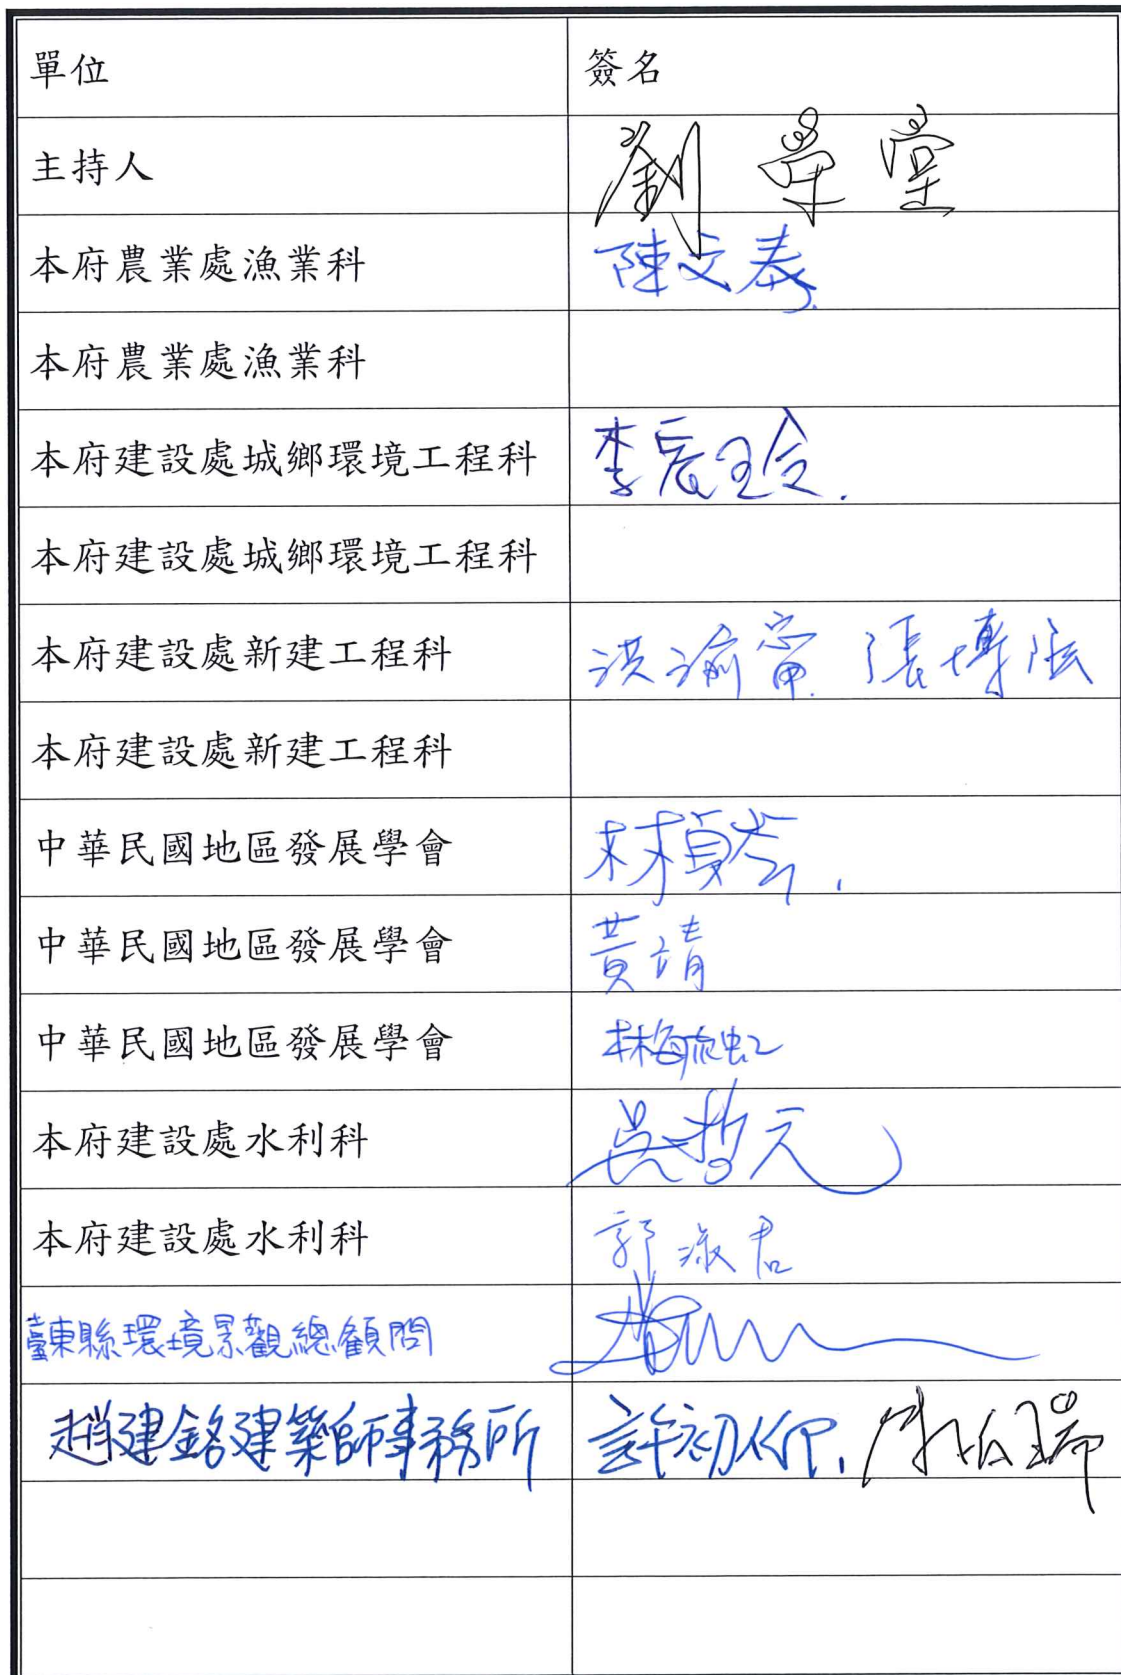 單位 簽名
主持人 劉學堂
本府農業處漁業科 陳文泰
本府農業處漁業科
本府建設處城鄉環境工程科 李宸玲
本府建設處城鄉環境工程科
本府建設處新建工程科 洪渝甯 張博
本府建設處新建工程科
中華民國地區發展學會 林貞岑
中華民國地區發展學會 黃靖
中華民國地區發展學會 林梅虹
本府建設處水利科 吳哲元
本府建設處水利科 郭淑君
臺東縣環境景觀總顧問
趙建銘建築師事務所 許初